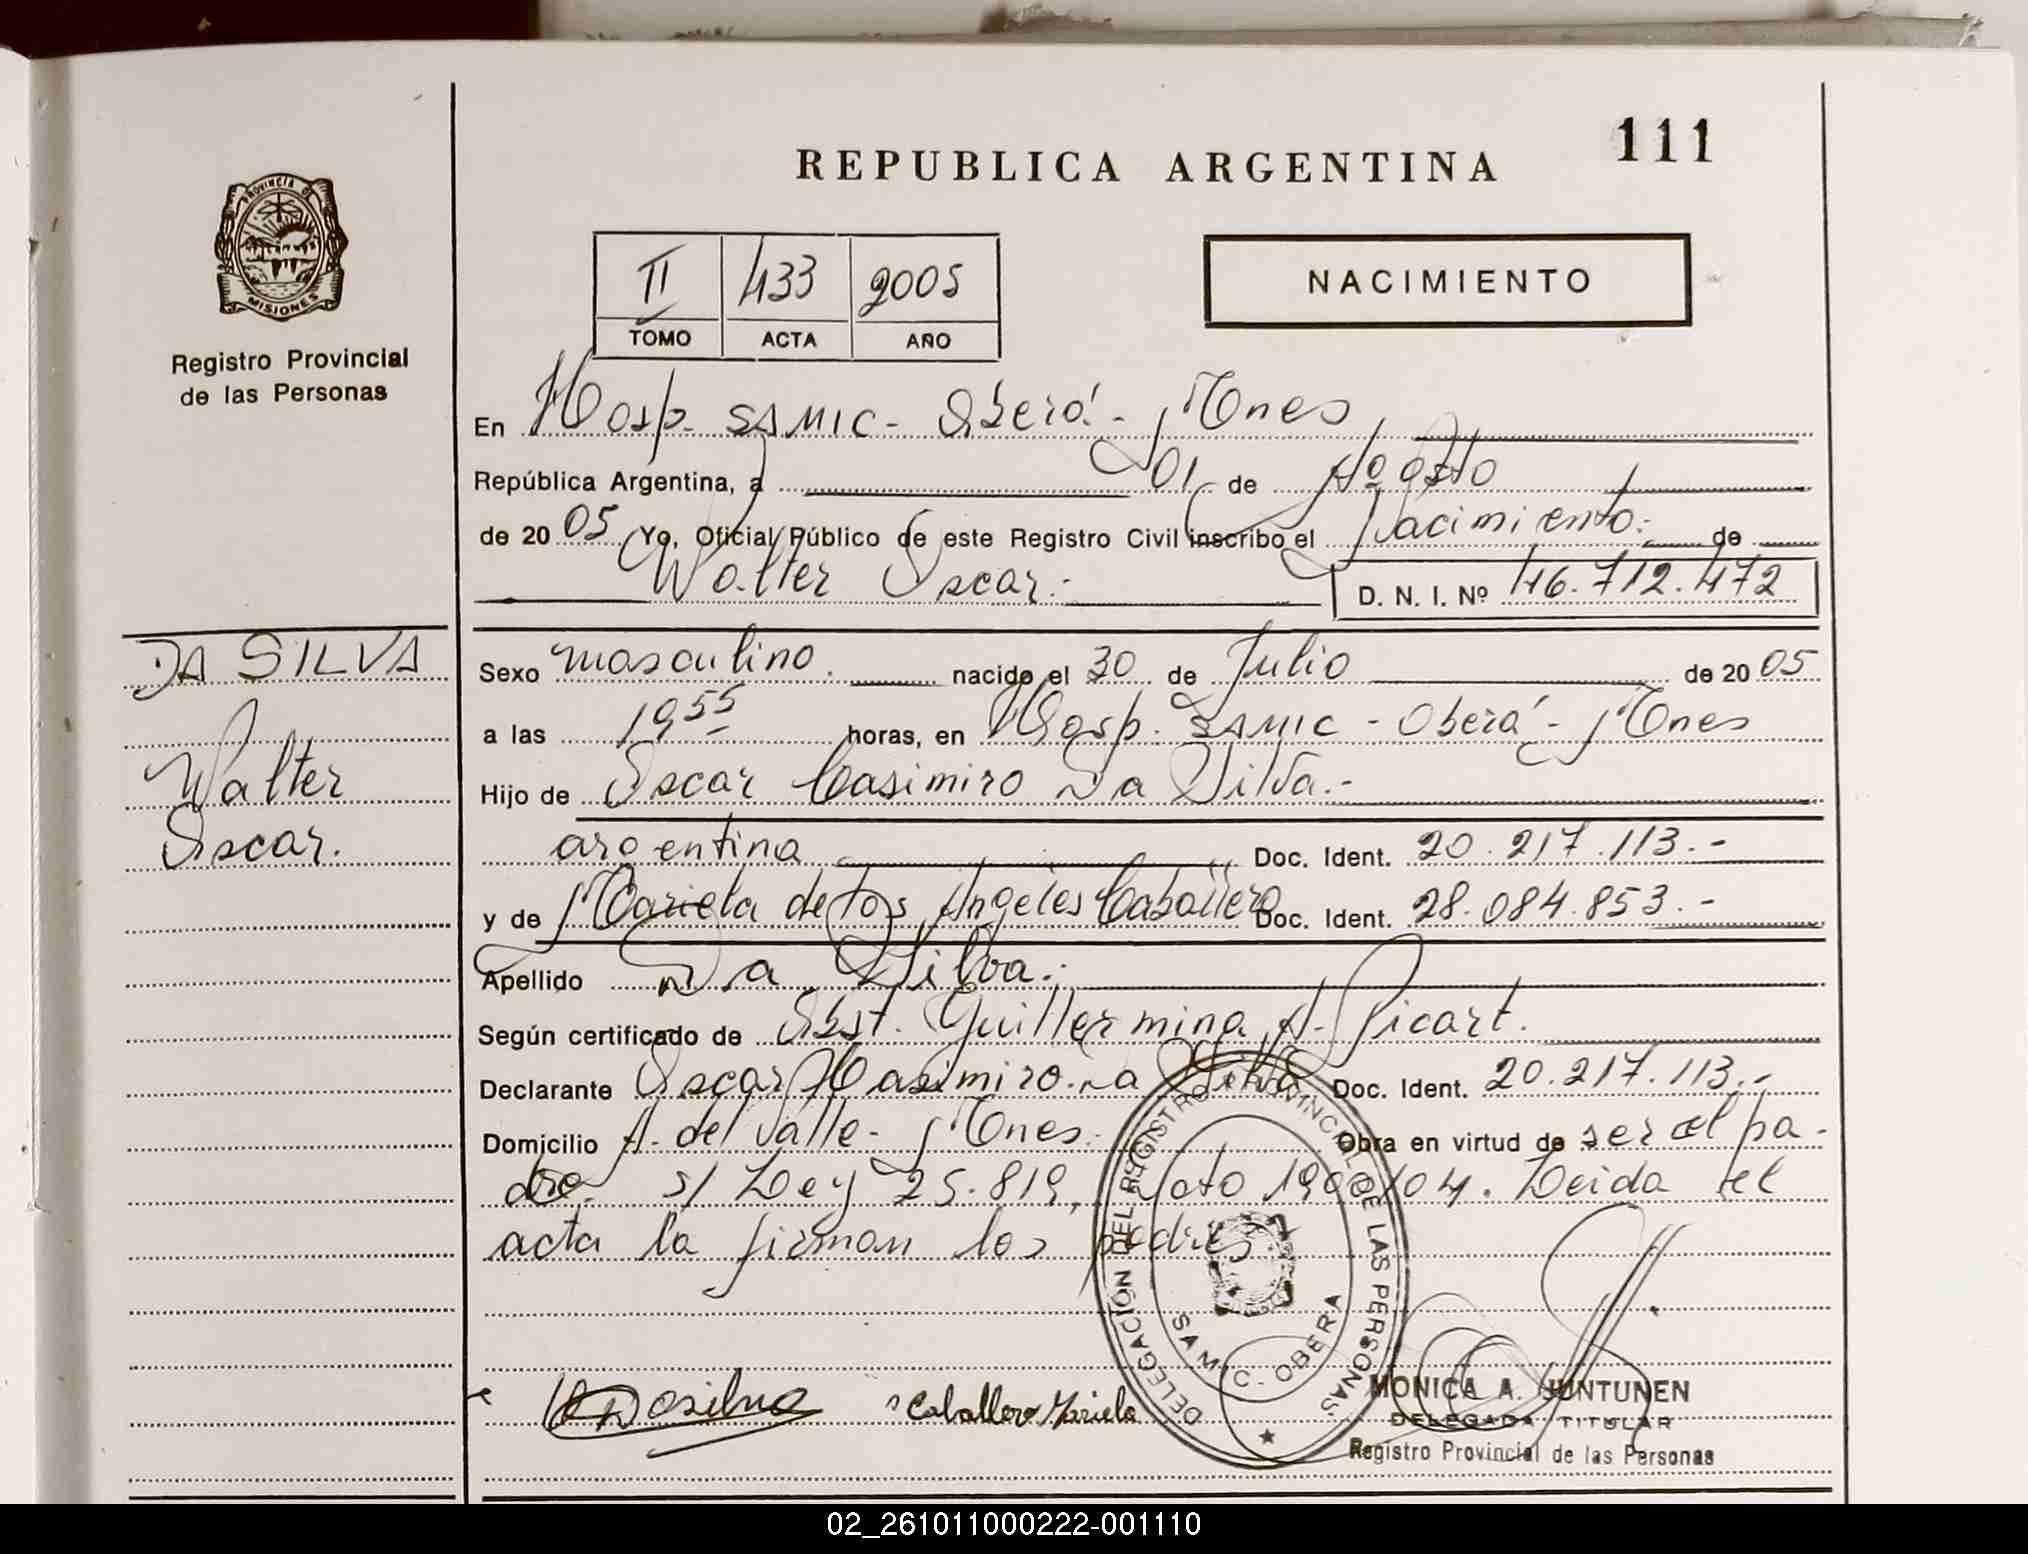 REPUBLICA ARGENTINA
111
PROVINCIA DE
MISIONES
Registro Provincial
de las Personas
II 433 2005
TOMO ACTA AÑO
NACIMIENTO
En Hosp. SAMIC - Oberá - Mnes
República Argentina, a 01 de Agosto
de 20 05 Yo, Oficial Público de este Registro Civil inscribo el Nacimiento.- de
Walter Oscar.- D. N. I. Nº 46.712.472
DA SILVA
Walter
Oscar.
Sexo masculino. nacido el 30 de Julio de 20 05
a las 19 55 horas, en Hosp. SAMIC - Oberá - Mnes
Hijo de Oscar Casimiro Da Silva.-
argentina Doc. Ident. 20.217.113.-
y de Mariela de los Angeles Caballero Doc. Ident. 28.084.853.-
Apellido Da Silva.-
Según certificado de Obst. Guillermina A. Picart.
Declarante Oscar Casimiro Da Silva Doc. Ident. 20.217.113.-
Domicilio A. del Valle - Mnes. Obra en virtud de ser el pa-
dre. s/ Ley 25.819, 190 /04. Leida el
acta la firman los padres
DELEGACIÓN DEL REGISTRO PROVINCIAL DE LAS PERSONAS
SAMIC - OBERA
Dasilva Caballero Mariela
MONICA A. JUNTUNEN
DELEGADA TITULAR
Registro Provincial de las Personas
02_261011000222-001110